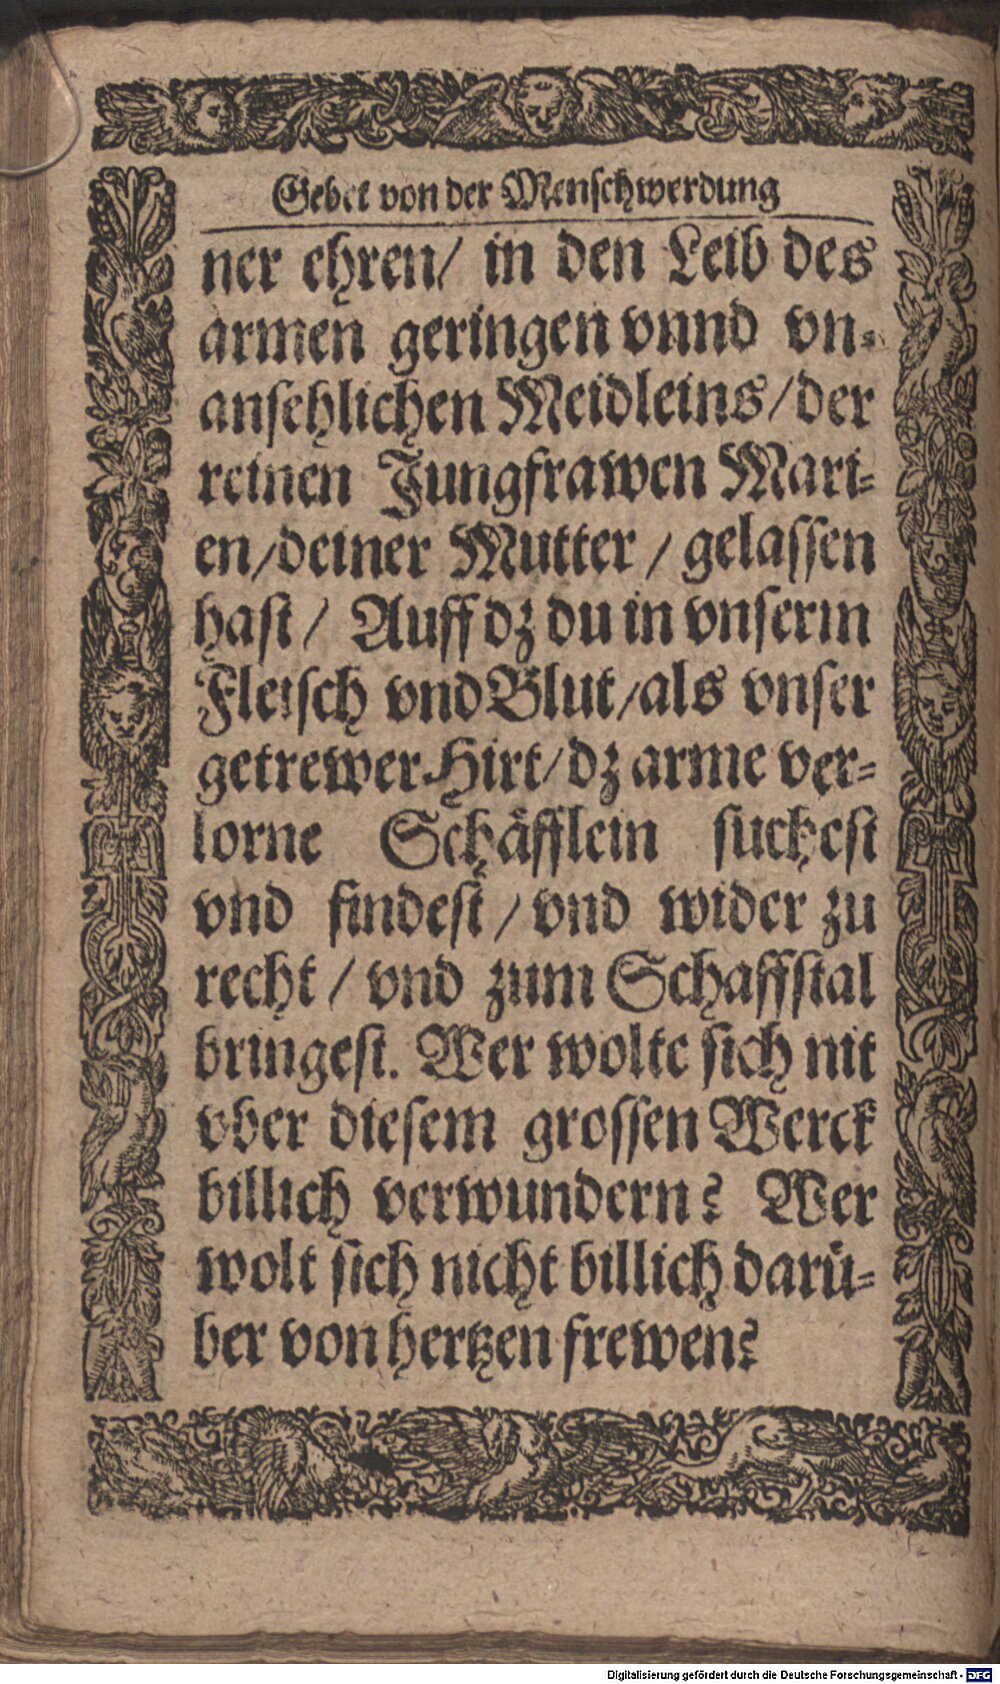 Gebet von der Menschwerdung
ner ehren/ in den Leib des
armen geringen vnnd vn-
ansehlichen Meidleins/der
reinen Jungfrawen Mari-
en/deiner Mutter / gelassen
hast/ Auff dz du in vnserm
Fleisch vnd Blut/als vnser
getrewer Hirt/dz arme ver-
lorne Schäfflein suchest
vnd findest / vnd wider zu
recht / vnd zum Schaffstal
bringest. Wer wolte sich nit
vber diesem grossen Werck
billich verwundern? Wer
wolt sich nicht billich darü-
ber von hertzen frewen?
Digitalisierung gefördert durch die Deutsche Forschungsgemeinschaft - DFG